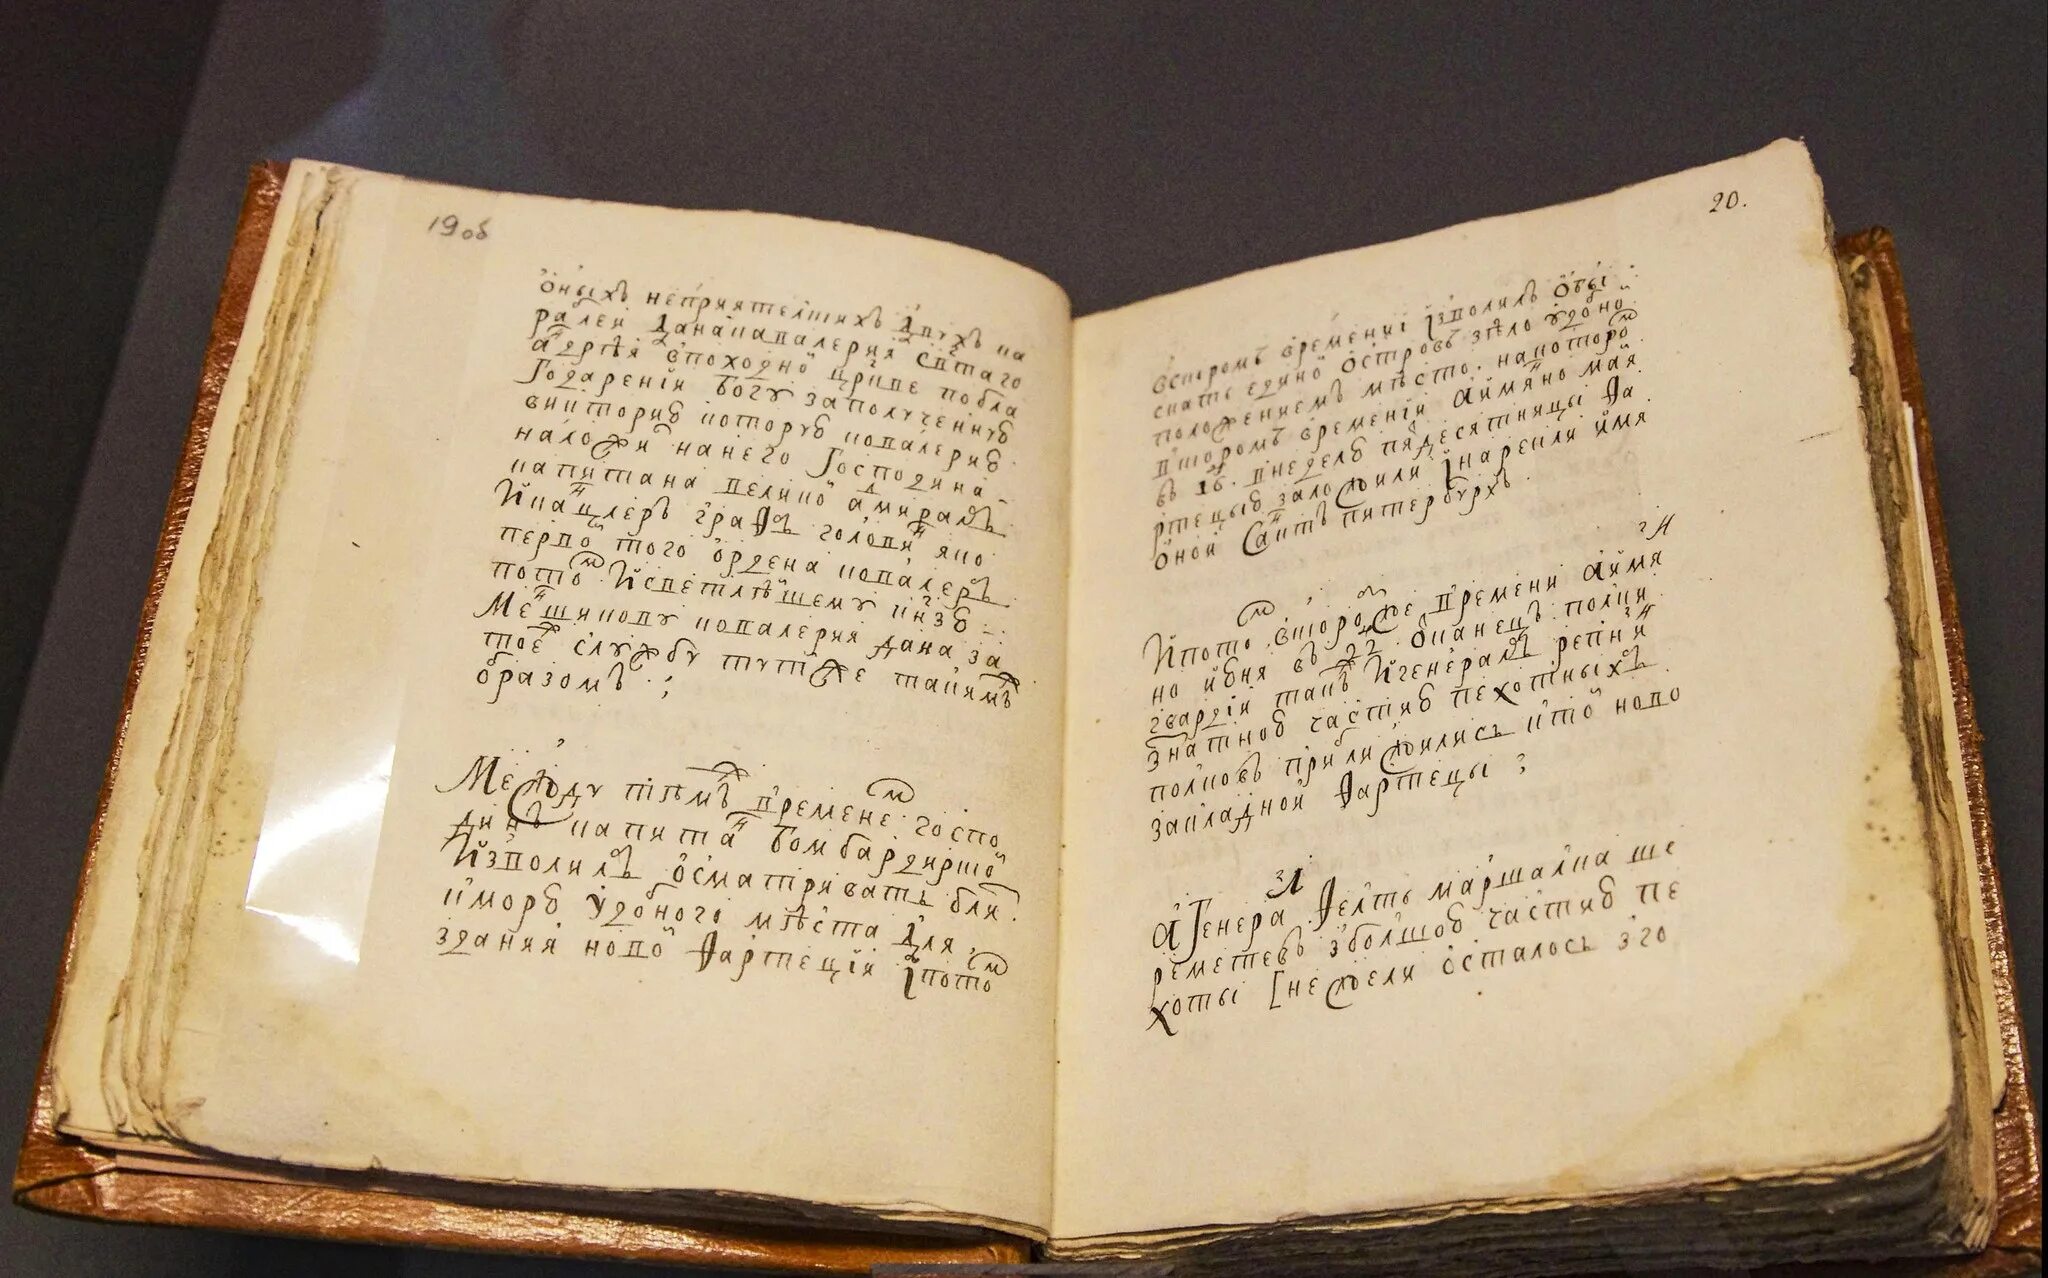 19 об
оныхъ неприятелскихъ двухъ ка
ралей дана кавалерия святаго
андрѣя впоходной црквѣ по бла
годарении богу заполученную
викторию которую кавалерию
наложи нанего господинъ
капитана великой адмиралъ
иканцлеръ графъ головин яко
первой того ордена кавалеръ
потом исветлѣйшему кнзю
меншикову кавалерия дана за
тоеж службу тутже такимъ
образомъ ;
Между тѣмъ временем госпо
динъ капитан бомбардирской
изволилъ осматривать бли
кморю удобного мѣста для
здания новой фартеции ипотом
20.
вскоромъ времении изволилъ обы
скать единой островъ зѣло удобной
положениемъ мѣсто. накотором
вскоромъ времении аимянно мая
въ 16. внеделю пядесятницы фа
ртецыю заложили инарекли имя
оной Санктъ питербурхъ
Ипотом вскороже времени аимян
но июня въ 22 сканецъ полки
гвардии такъ игенералъ репнин
знатною частию пехотных
полковъ приближились ктой ново
закладной фартецы ;
Агенерал фелть маршалка ше
реметевъ зболшою частию пе
хоты [нежели осталось зго